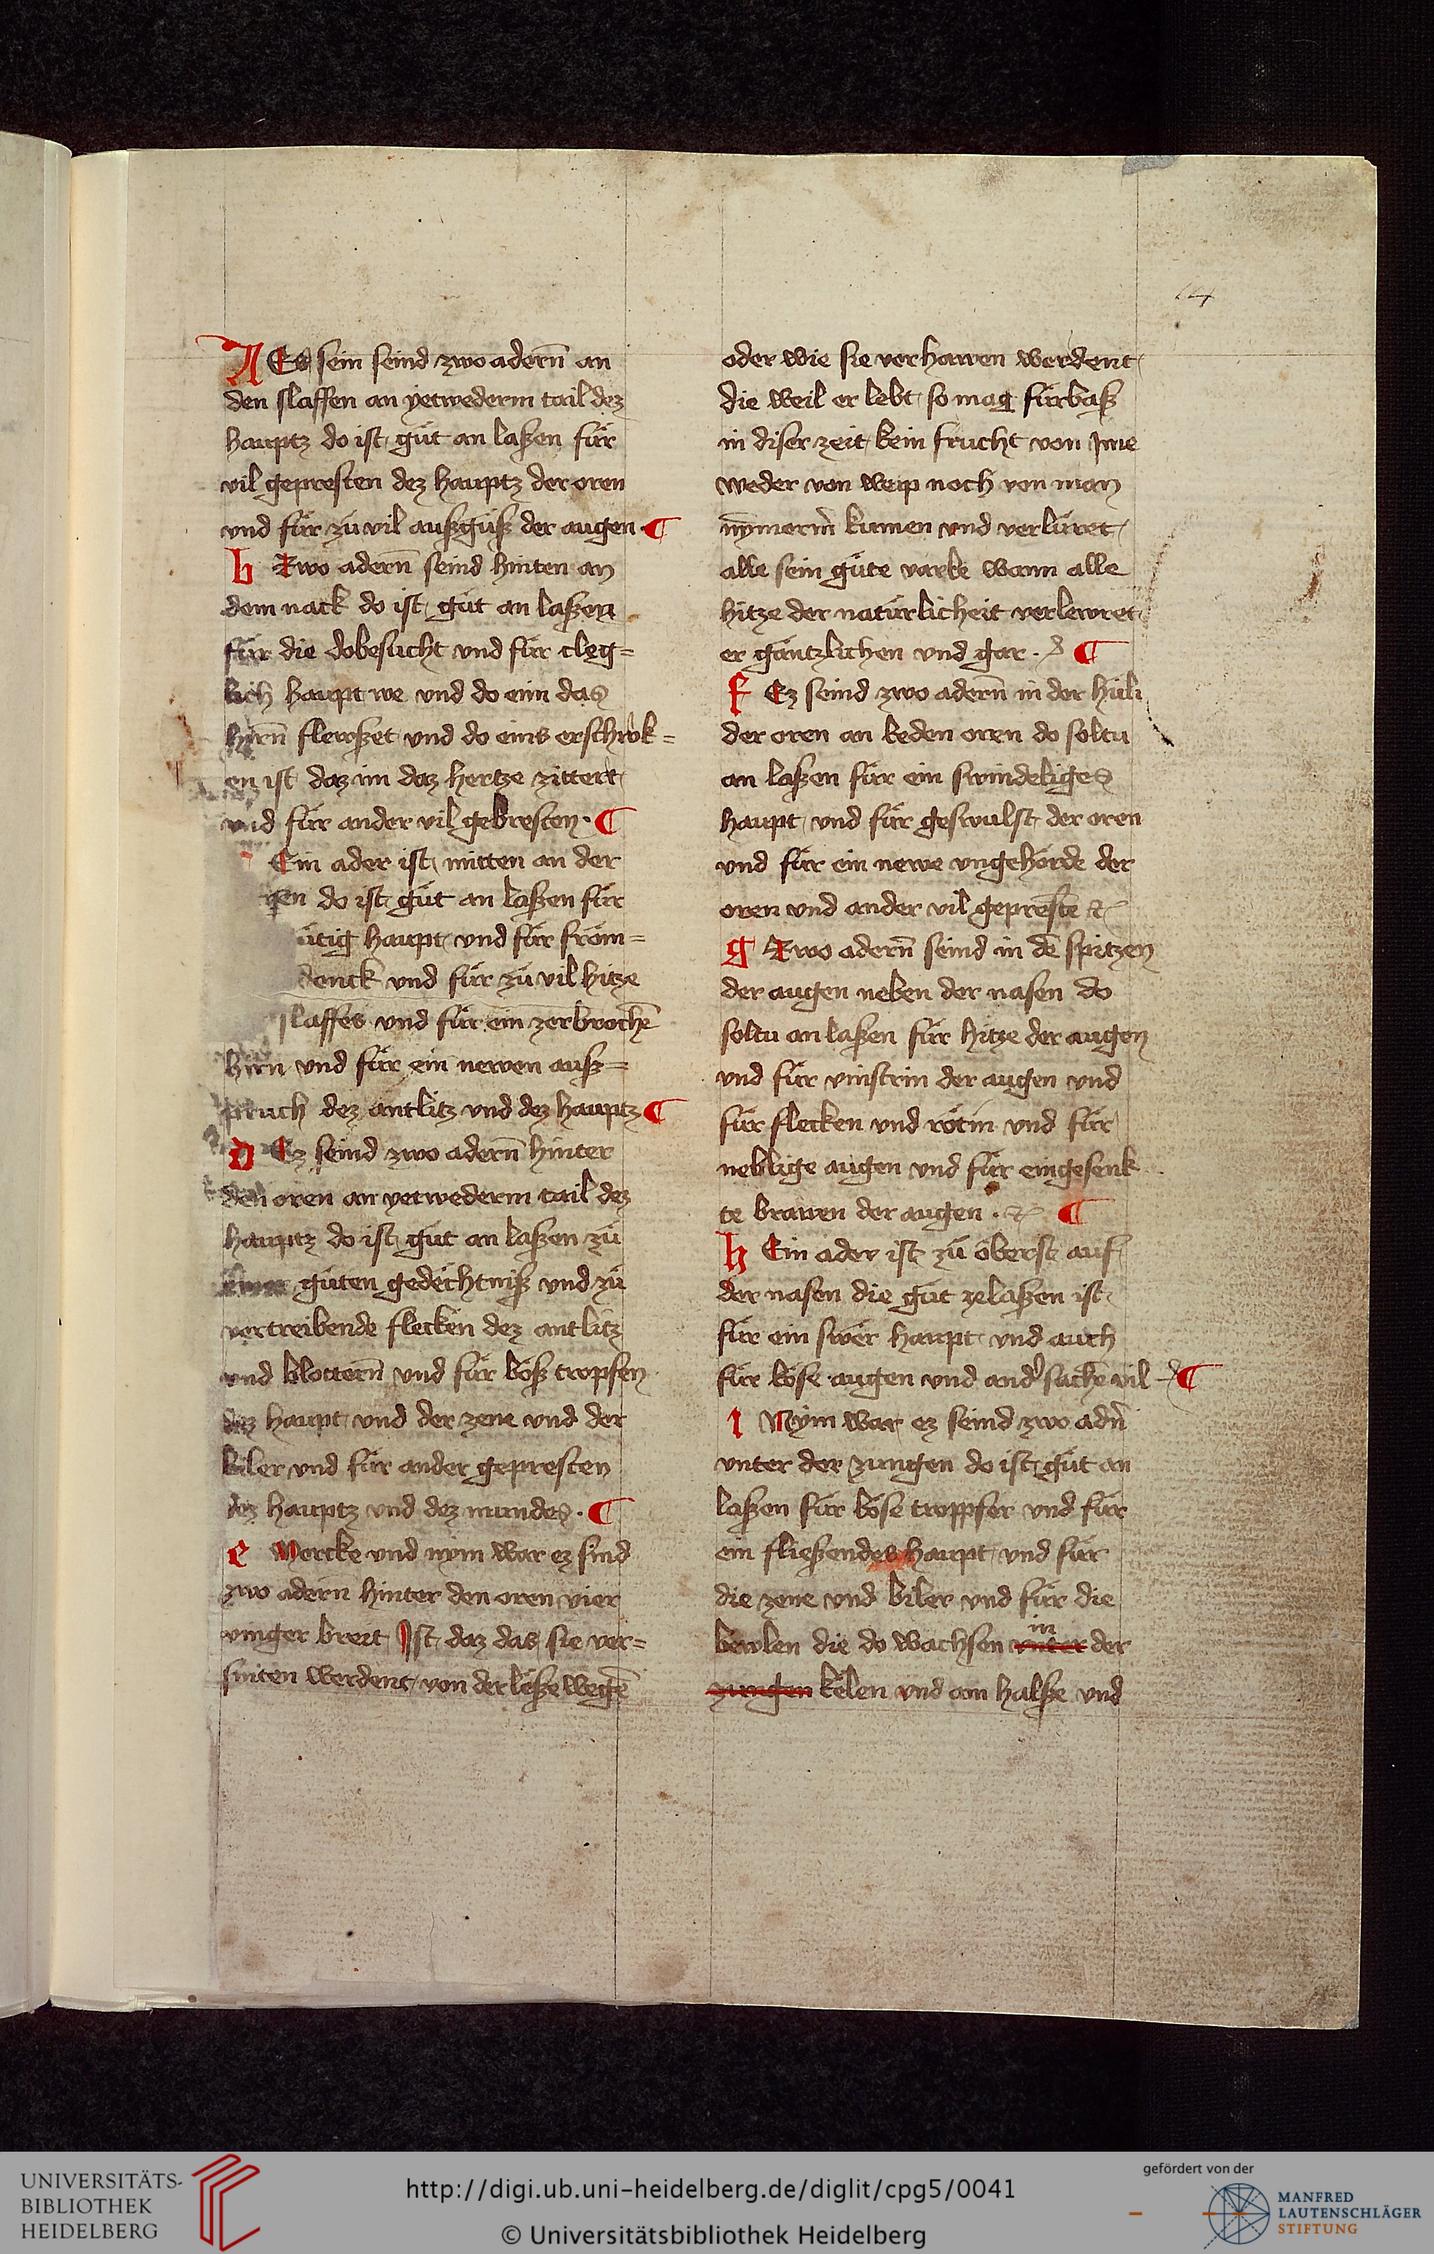 14
A Es sein seind zwo adern̄ an
den slaffen an yetwederm tail dez
hauptz do ist gůt an laßen für
vil gepresten dez hauptz der oren
vnd für zů vil außguß der augen ¶
b Two adern̄ seind hinten an
dem nack do ist gůt an laßen
für die dobesucht vnd für cleg=
lich haupt we vnd do eim das
hirn̄ flewßet vnd do eins erschrok=
en ist daz im daz hertze zittert
vnd für ander vil gebresten · ¶
Ein ader ist mitten an der
do ist gůt an laßen für
ütig haupt vnd für fröm=
denck vnd für zů vil hitze
slaffes vnd für ein zerbrochē
hirn vnd für ein newen auß=
pruch dez antlitz vnd dez hauptz ¶
D Ez seind zwo adern̄ hinter
den oren an yetwederm tail dez
hauptz do ist gůt an laßen zů
guten gedechtniß vnd zů
vertreibende flecken dez antlitz
vnd blottern̄ vnd für böß tropfen
dez haupt vnd der zene vnd der
biler vnd für ander gepresten
dez hauptz vnd dez mundes · ¶
e Mercke vnd nym war ez sind
zwo adern hinter den oren vier
vinger breit Ist daz das sie ver=
sniten werdent von der leßze wegē
oder wie sie verhawen werdent
die weil er lebt so mag fürbaß
in diser zeit kein frucht von Ime
weder von weip noch von man
nȳmerm̄ kumen vnd verlüret
alle sein gůte varbe wann alle
hitze der natürlicheit verlewret
er gäntzlichen vnd gar · ¶
f Ez seind zwo adern̄ in der hüli
der oren an beden oren do soltu
an laßen für ein swindeliges
haupt vnd für geswulst der oren
vnd für ein newe vngehörde der
oren vnd ander vil gepresten̄ etc
g Two adern̄ seind in dē spitzen
der augen neben der nasen do
soltu an laßen für hitze der augen
vnd für vinstrin der augen vnd
für flecken vnd rötin vnd für
neblige augen vnd für eingesenk
te brawen der augen · etc ¶
h Ein ader ist zů öberst auf
der nasen die gůt ze laßen ist
für ein swer haupt vnd auch
für böse augen vnd and̄ sachē vil ¶
i Nym war ez seind zwo ad̄n
vnter der zungen do ist gůt an
laßen für böse troppfer vnd für
ein fließendes haupt vnd für
die zene vnd biler vnd für die
in
bewlen die do wachsen vnter der
zungen kelen vnd am halße vnd
UNIVERSITÄTS-
BIBLIOTHEK
HEIDELBERG
http://digi.ub.uni-heidelberg.de/diglit/cpg5/0041
© Universitätsbibliothek Heidelberg
gefördert von der
MANFRED
LAUTENSCHLÄGER
STIFTUNG